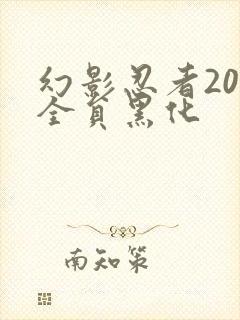 幻影忍者20
全员黑化
南知策